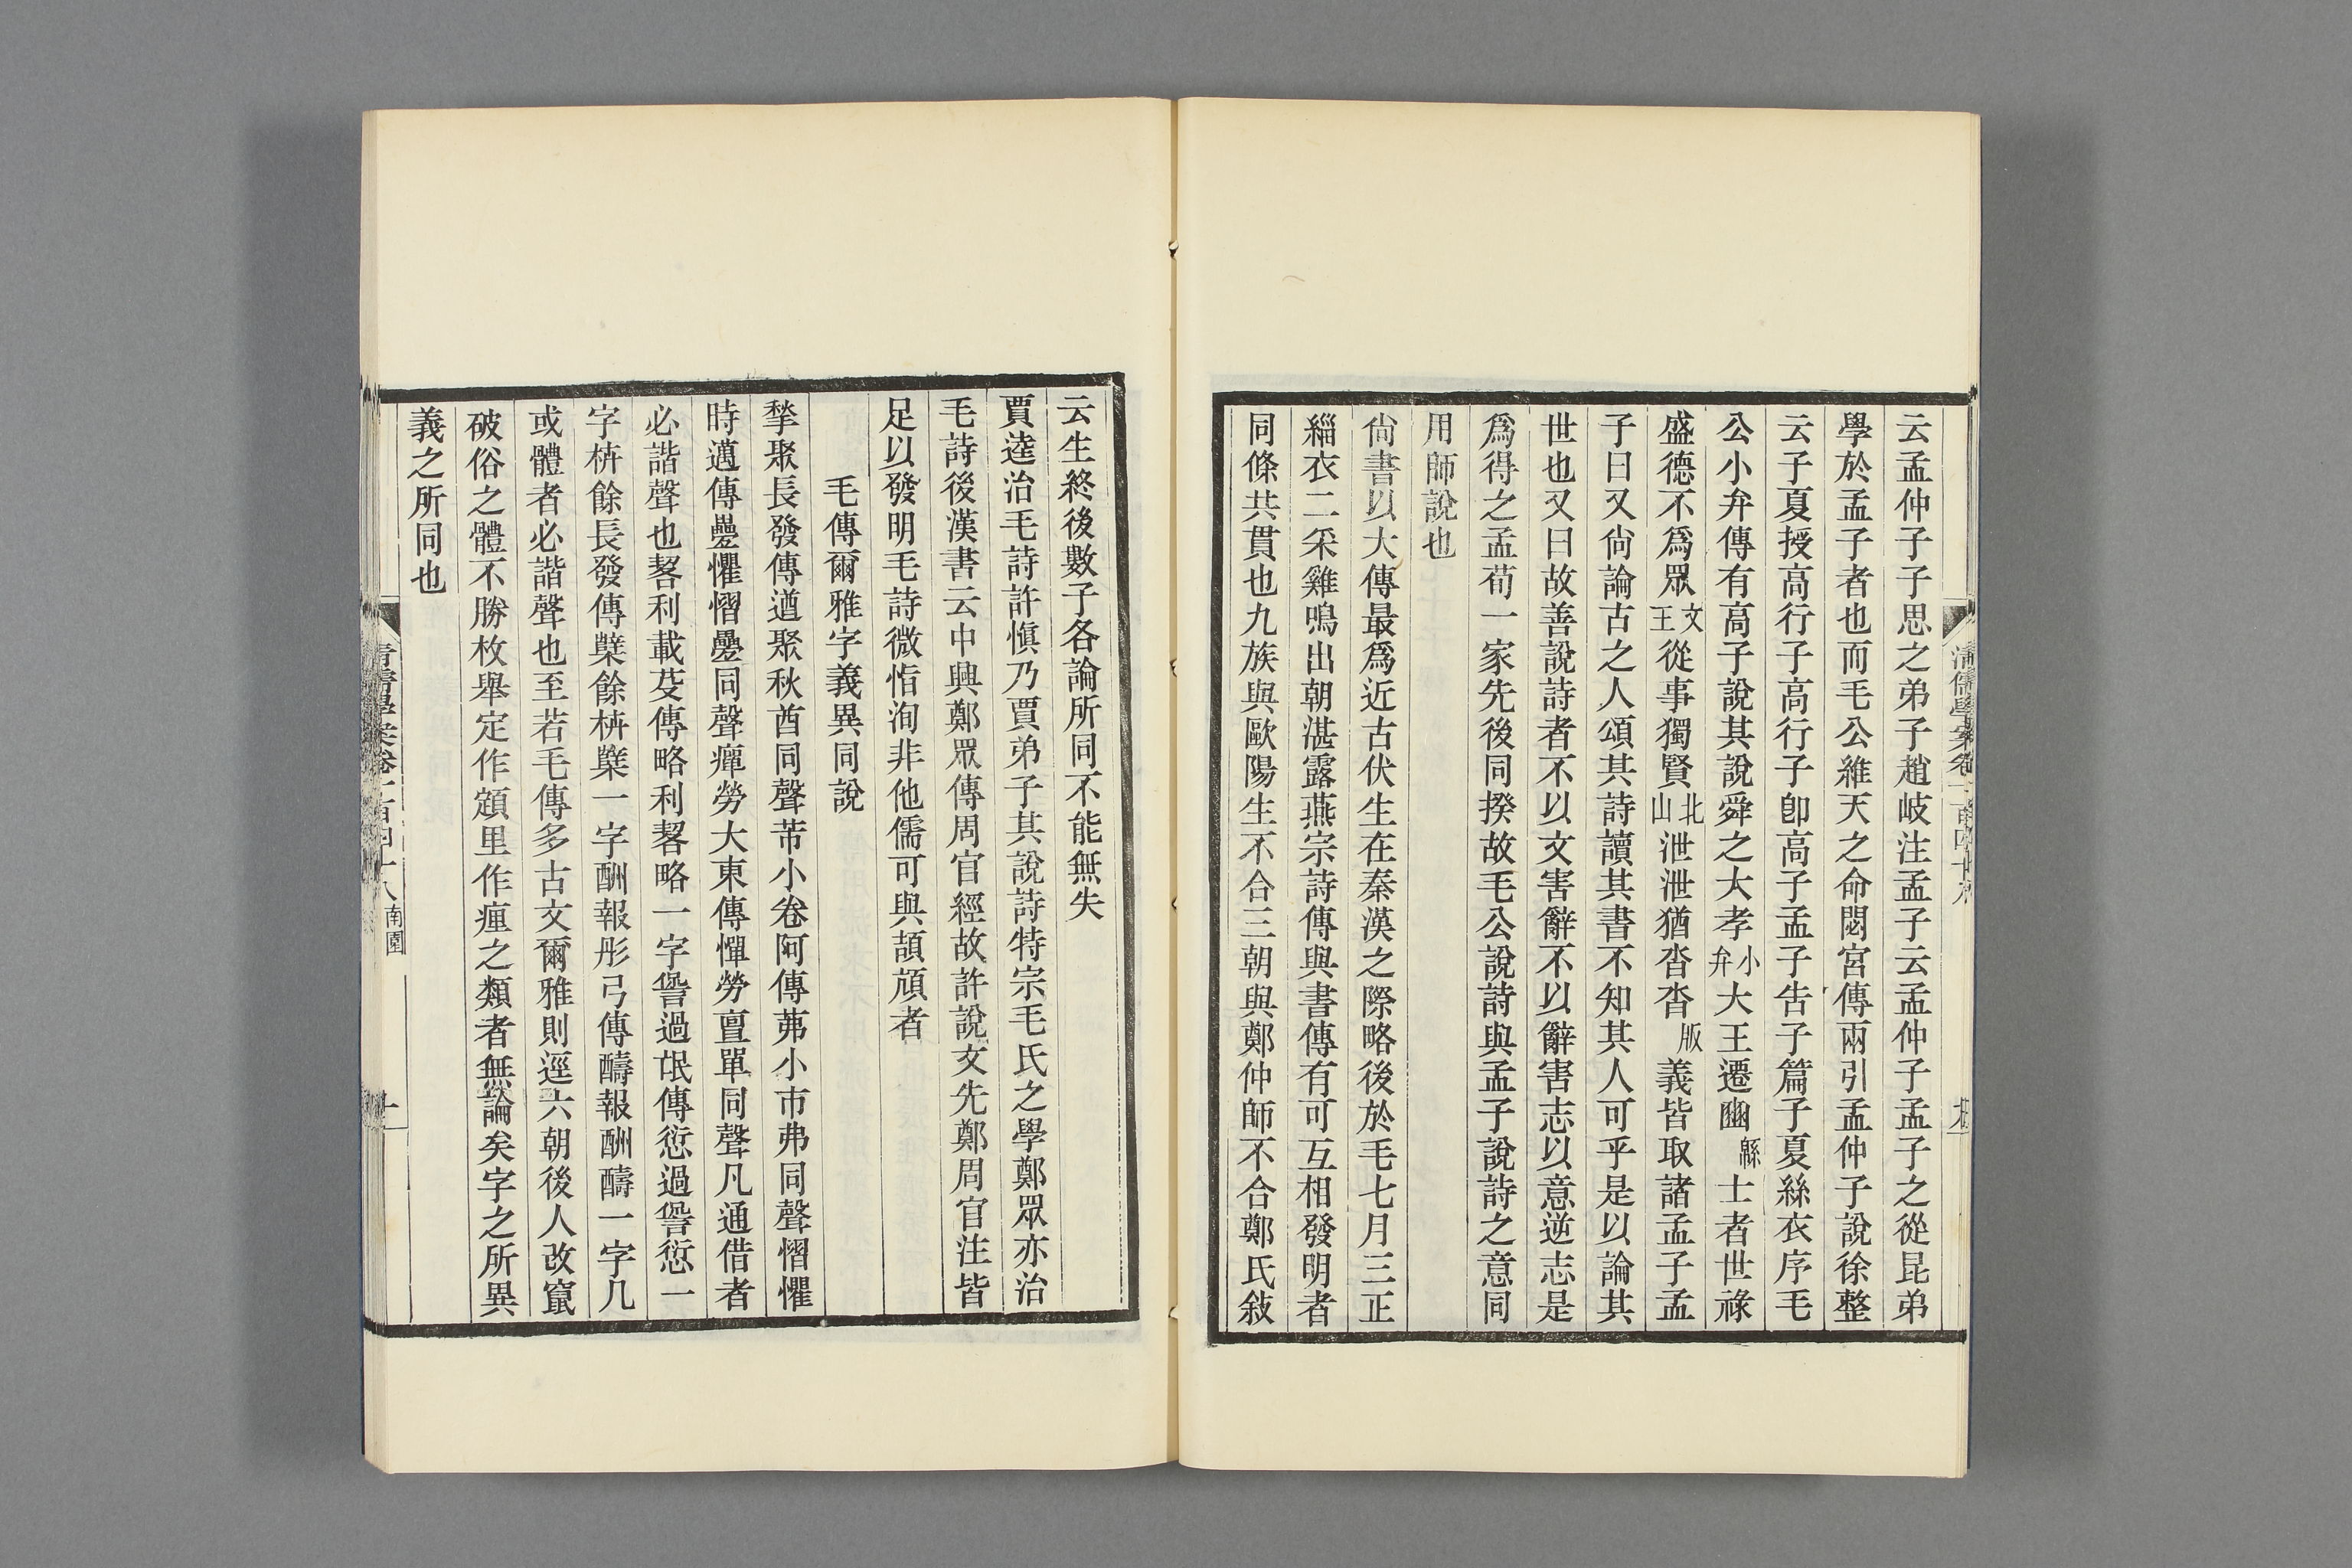 云孟仲子子思之弟子趙岐注孟子云孟仲子孟子之從昆弟
學於孟子者也而毛公維天之命閟宮傳兩引孟仲子說徐整
云子夏授高行子高行子卽高子孟子告子篇子夏絲衣序毛
公小弁傳有高子說其說舜之大孝小弁大王遷豳緜士者世祿
盛德不爲眾文王從事獨賢北山泄泄猶沓沓版義皆取諸孟子孟
子曰又尙論古之人頌其詩讀其書不知其人可乎是以論其
世也又曰故善說詩者不以文害辭不以辭害志以意逆志是
爲得之孟荀一家先後同揆故毛公說詩與孟子說詩之意同
用師說也
尙書以大傳最爲近古伏生在秦漢之際略後於毛七月三正
緇衣二采雞鳴出朝湛露燕宗詩傳與書傳有可互相發明者
同條共貫也九族與歐陽生不合三朝與鄭仲師不合鄭氏敍
清儒學案卷一百四十八
云生終後數子各論所同不能無失
賈逵治毛詩許愼乃賈弟子其說詩特宗毛氏之學鄭眾亦治
毛詩後漢書云中興鄭眾傳周官經故許說文先鄭周官注皆
足以發明毛詩微恉洵非他儒可與頡頏者
毛傳爾雅字義異同說
揫聚長發傳遒聚秋酋同聲芾小卷阿傳茀小巿弗同聲慴懼
時邁傳疊懼慴疊同聲癉勞大東傳憚勞亶單同聲凡通借者
必諧聲也䂮利載芟傳略利䂮略一字諐過氓傳愆過諐愆一
字枿餘長發傳櫱餘枿櫱一字酬報彤弓傳醻報酬醻一字几
或體者必諧聲也至若毛傳多古文爾雅則逕六朝後人改竄
破俗之體不勝枚舉定作顁里作㾖之類者無論矣字之所異
義之所同也
清儒學案卷一百四十八 南園